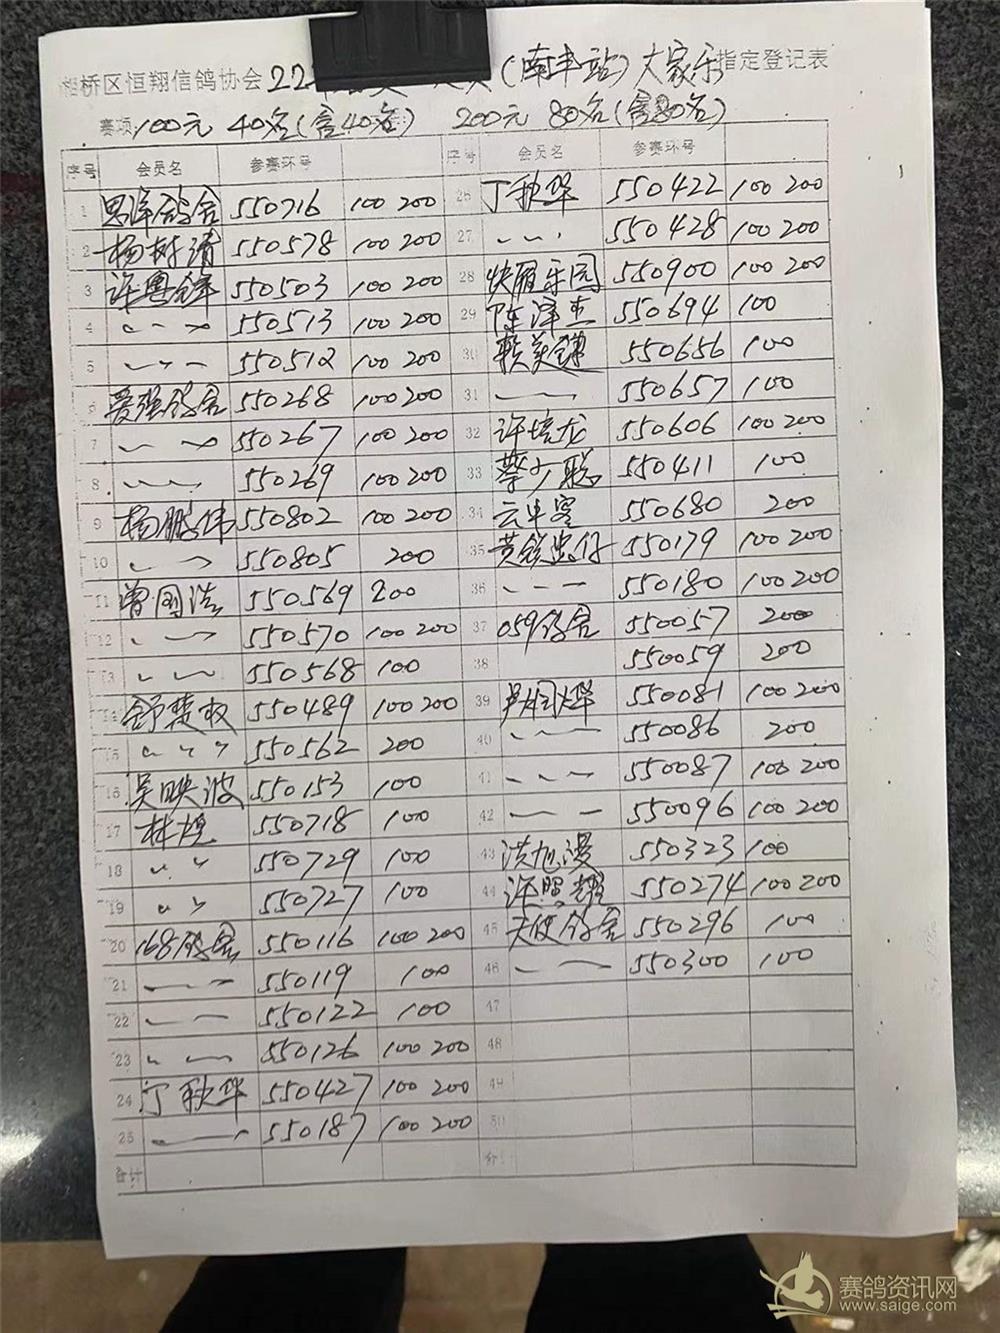 桥区恒翔信鸽协会22 (南丰站)大家乐指定登记表
赛项 100元 40名(含40名) 200元 80名(含80名)
序号 会员名 参赛环号 序号 会员名 参赛环号
1 思泽鸽舍 550716 100 200 26 丁秋华 550422 100 200
2 杨树清 550578 100 200 27 〃 550428 100 200
3 许粤锋 550503 100 200 28 快雁乐园 550900 100 200
4 〃 550513 100 200 29 陈泽杰 550694 100
5 〃 550512 100 200 30 赖英雄 550656 100
6 爱强鸽舍 550268 100 200 31 〃 550657 100
7 〃 550267 100 200 32 许培龙 550606 100 200
8 〃 550269 100 200 33 蔡少聪 550411 100
9 杨鹏伟 550802 100 200 34 云中客 550680 200
10 〃 550805 200 35 黄 忠仔 550179 100 200
11 曾国浩 550569 200 36 〃 550180 100 200
12 〃 550570 100 200 37 059鸽舍 550057 200
13 〃 550568 100 38 550059 200
14 舒楚权 550489 100 200 39 吴国烨 550081 100 200
15 〃 550562 200 40 〃 550086 200
16 吴映波 550153 100 41 〃 550087 100 200
17 林 550718 100 42 〃 550096 100 200
18 〃 550729 100 43 洪旭漫 550323 100
19 〃 550727 100 44 许照耀 550274 100 200
20 168鸽舍 550116 100 200 45 天使鸽舍 550296 100
21 〃 550119 100 46 〃 550300 100
22 〃 550122 100 47
23 〃 550126 100 200 48
24 丁秋华 550427 100 200 49
25 〃 550187 100 200 50
合计
赛鸽资讯网
www.saige.com